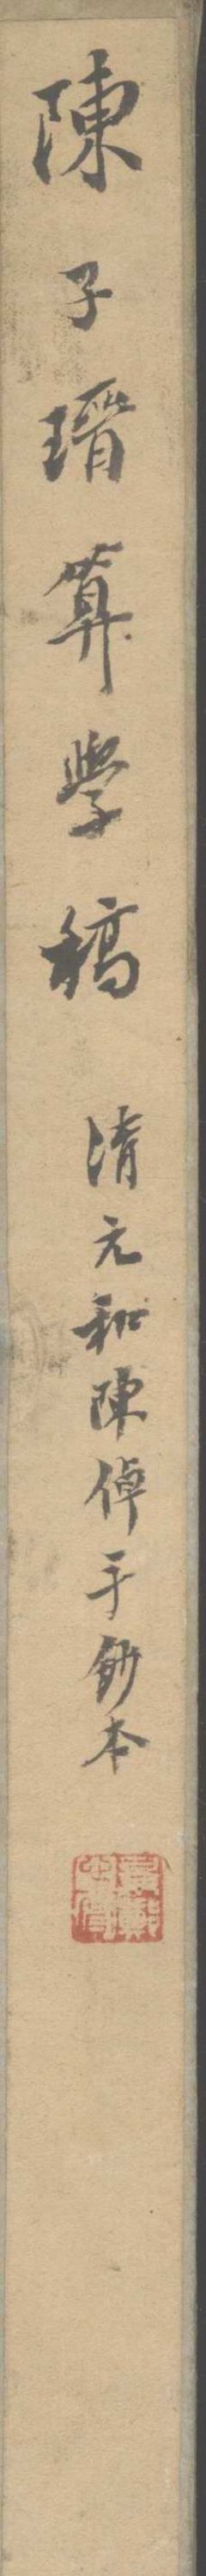 陳子瑨算學稿
清元和陳倬手鈔本